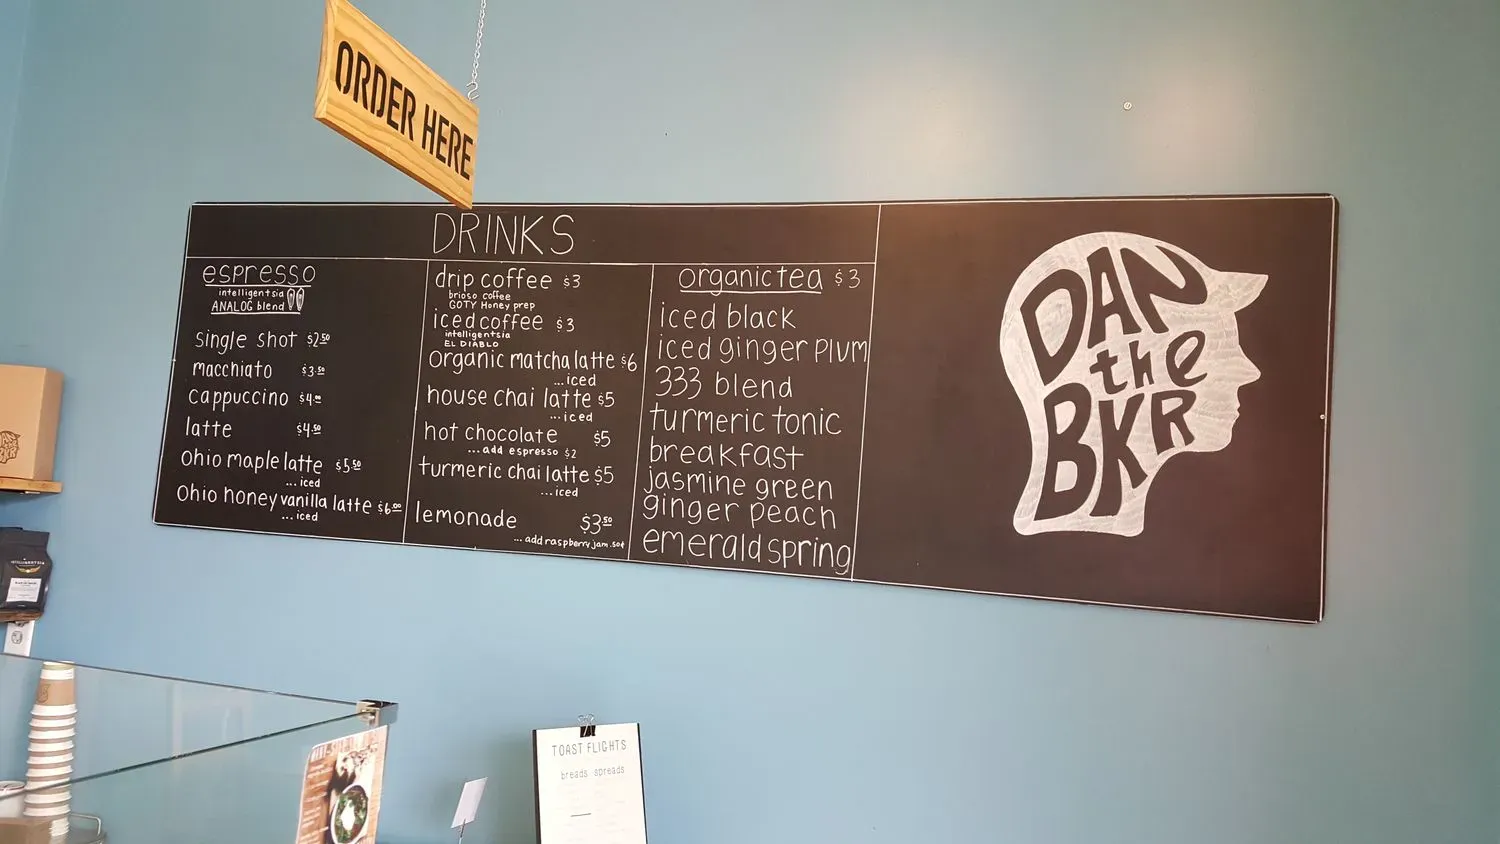 ORDER HERE
DRINKS
espresso
intelligentsia
ANALOG blend
single shot $2.50
macchiato $3.50
cappuccino $4.00
latte $4.50
Ohio maple latte $5.50
...iced
Ohio honey vanilla latte $6.00
...iced
drip coffee $3
brioso coffee
GOTY Honey prep
iced coffee $3
intelligentsia
EL DIABLO
organic matcha latte $6
...iced
house chai latte $5
...iced
hot chocolate $5
...add espresso $2
turmeric chai latte $5
...iced
lemonade $3.50
...add raspberry jam .50¢
organic tea $3
iced black
iced ginger plum
333 blend
turmeric tonic
breakfast
jasmine green
ginger peach
emerald spring
DAN
the
BKR
TOAST FLIGHTS
breads spreads